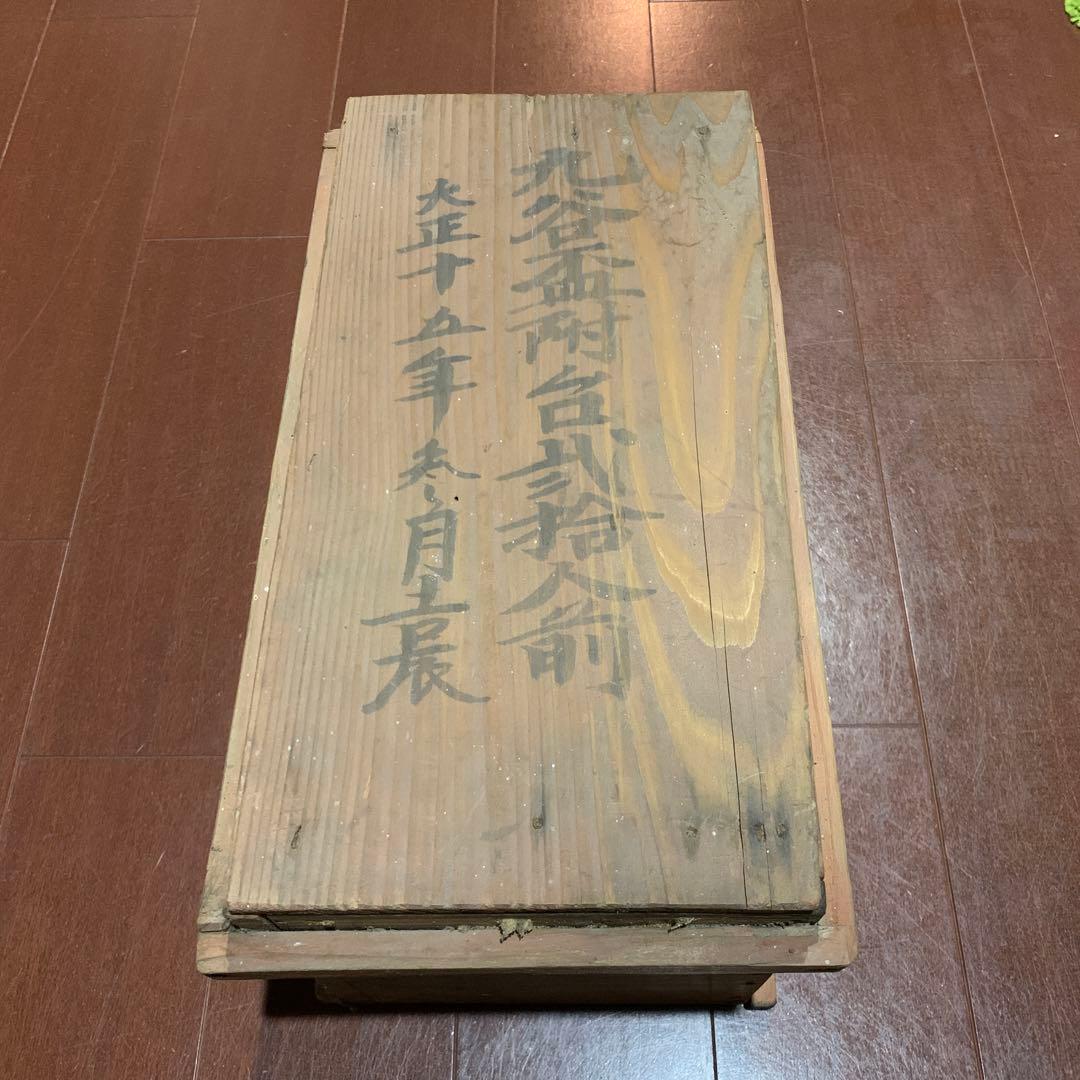 九谷盃附台弐拾人前
大正十五年冬月𠮷辰